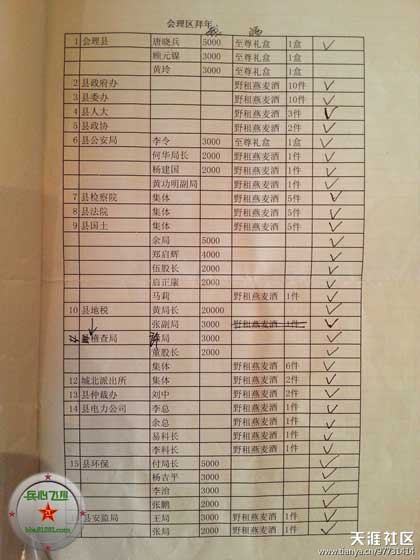 会理区拜年
酒
1 会理县 唐晓兵 5000 至尊礼盒 1盒
顾元镍 3000 至尊礼盒 1盒
黄玲 3000 至尊礼盒 1盒
2 县政府办 野租燕麦酒 10件
3 县委办 野租燕麦酒 10件
4 县人大 野租燕麦酒 3件
5 县政协 野租燕麦酒 2件
6 县公安局 李令 3000 至尊礼盒 1盒
何华局长 2000 野租燕麦酒 1件
杨建国 2000 野租燕麦酒 1件
黄功明副局 野租燕麦酒 1件
7 县检察院 集体 野租燕麦酒 5件
8 县法院 集体 野租燕麦酒 5件
9 县国土 集体 野租燕麦酒 5件
余局 5000
郑启辉 4000
伍股长 2000
启正康 2000
马莉 野租燕麦酒 1件
10 县地税 黄局长 20000
张副局 3000 野租燕麦酒 1件
稽查局 局 3000
董股长 2000
集体 野租燕麦酒 6件
12 城北派出所 集体 野租燕麦酒 2件
13 县仲裁办 刘中 野租燕麦酒 2件
14 县电力公司 李总 野租燕麦酒 1件
余总 野租燕麦酒 1件
易科长 野租燕麦酒 1件
李科长 野租燕麦酒 1件
15 县环保 付局长 5000
杨吉平 3000
李治 3000
张鹏 2000
县安监局 王局 3000 野租燕麦酒 1件
张局 2000 野租燕麦酒 1件
民心飞想
bbs.81281.com
天涯社区
www.tianya.cn/97731414